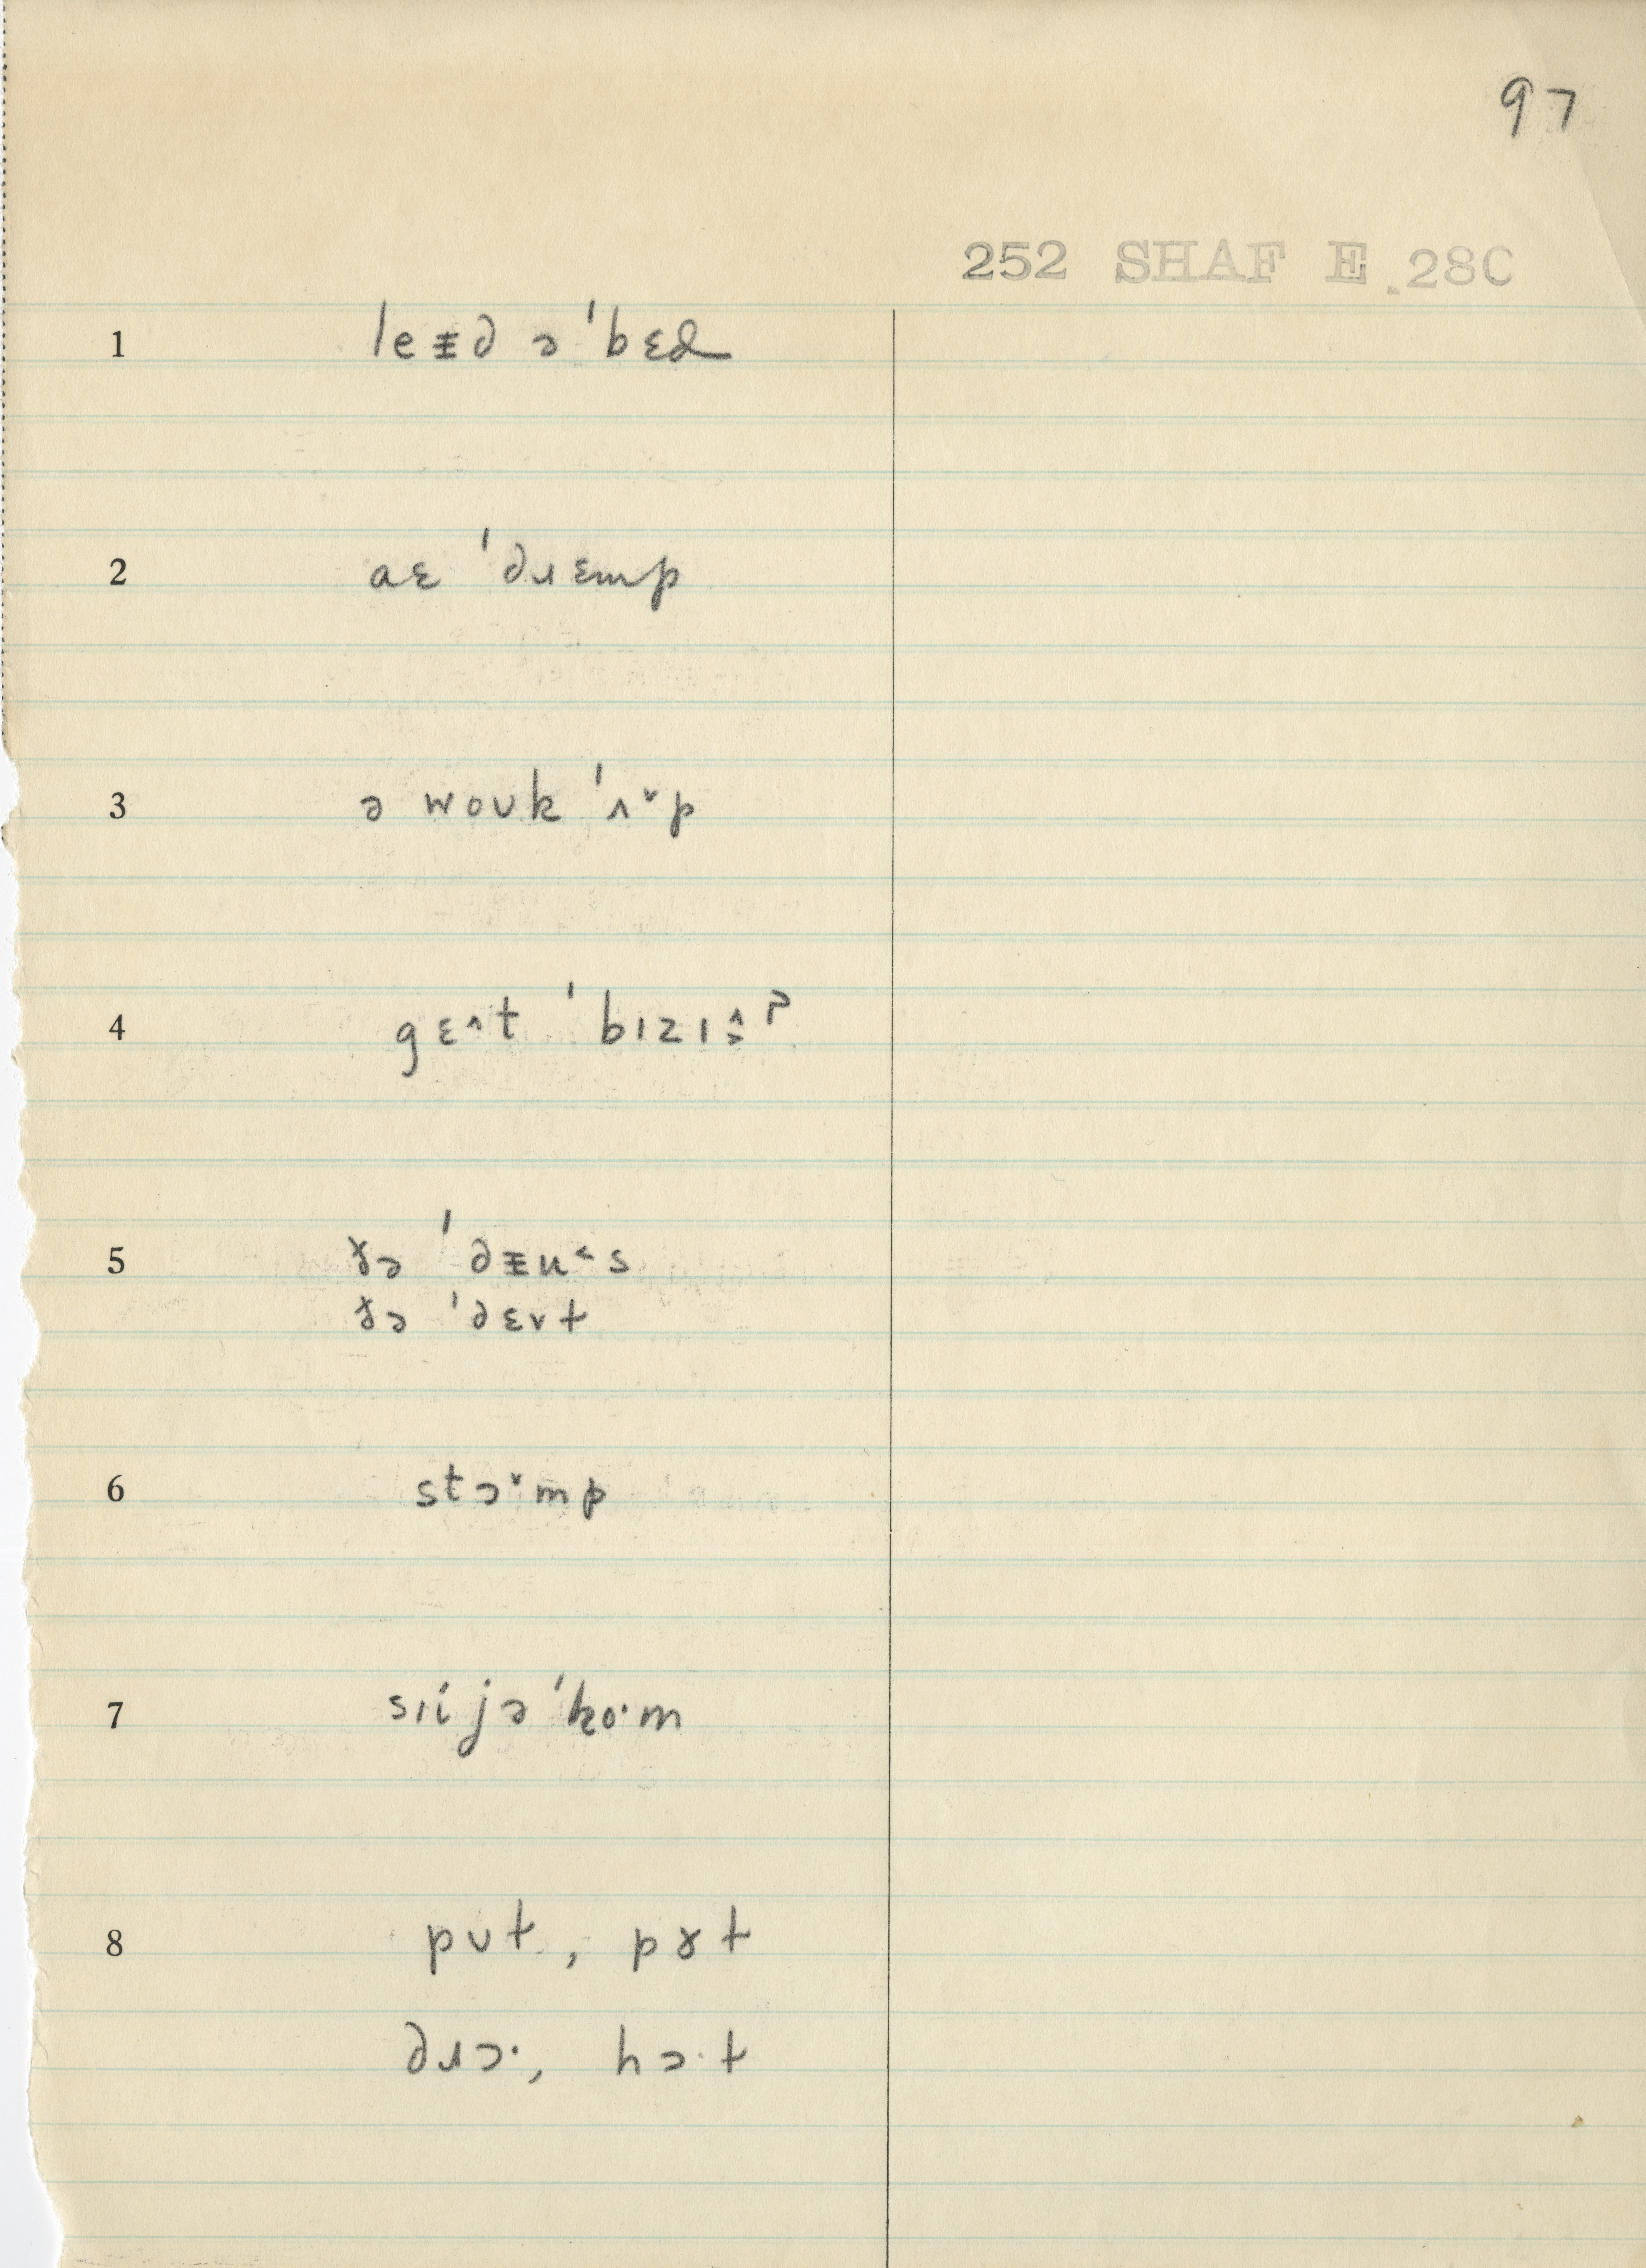 97
252 SHAF E.28C
1 leᵻd ə ˈbɛd
2 aɛ ˈdɹɛmp
3 ə woʊk ˈʌ˅p
4 gɛ˄t ˈbɪzɪ
5 ðə ˈdᵻu˂s
ðə ˈdɛvt
6 stɔ˅mp
7 sɪi jə ˈho·m
8 pʊt, pɤt
dɹɔ·, hɔ·t